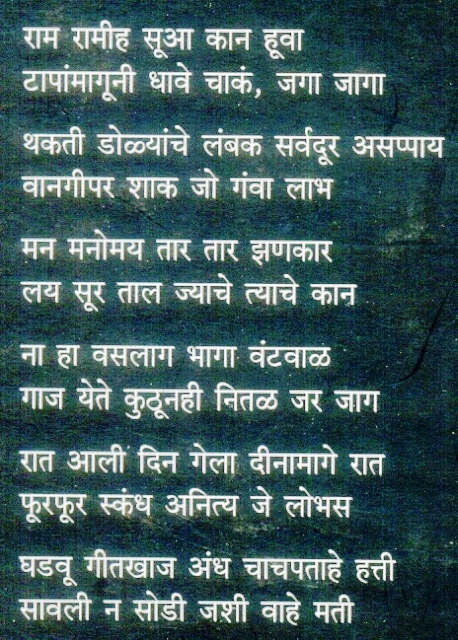 राम रामीह सूआ कान हूवा
टापांमागूनी धावे चाकं, जगा जागा
थकती डोळ्यांचे लंबक सर्वदूर असप्पाय
वानगीपर शाक जो गंवा लाभ
मन मनोमय तार तार झणकार
लय सूर ताल ज्याचे त्याचे कान
ना हा वसलाग भागा वंटवाळ
गाज येते कुठूनही नितळ जर जाग
रात आली दिन गेला दीनामागे रात
फूरफूर स्कंध अनित्य जे लोभस
घडवू गीतखाज अंध चाचपताहे हत्ती
सावली न सोडी जशी वाहे मती